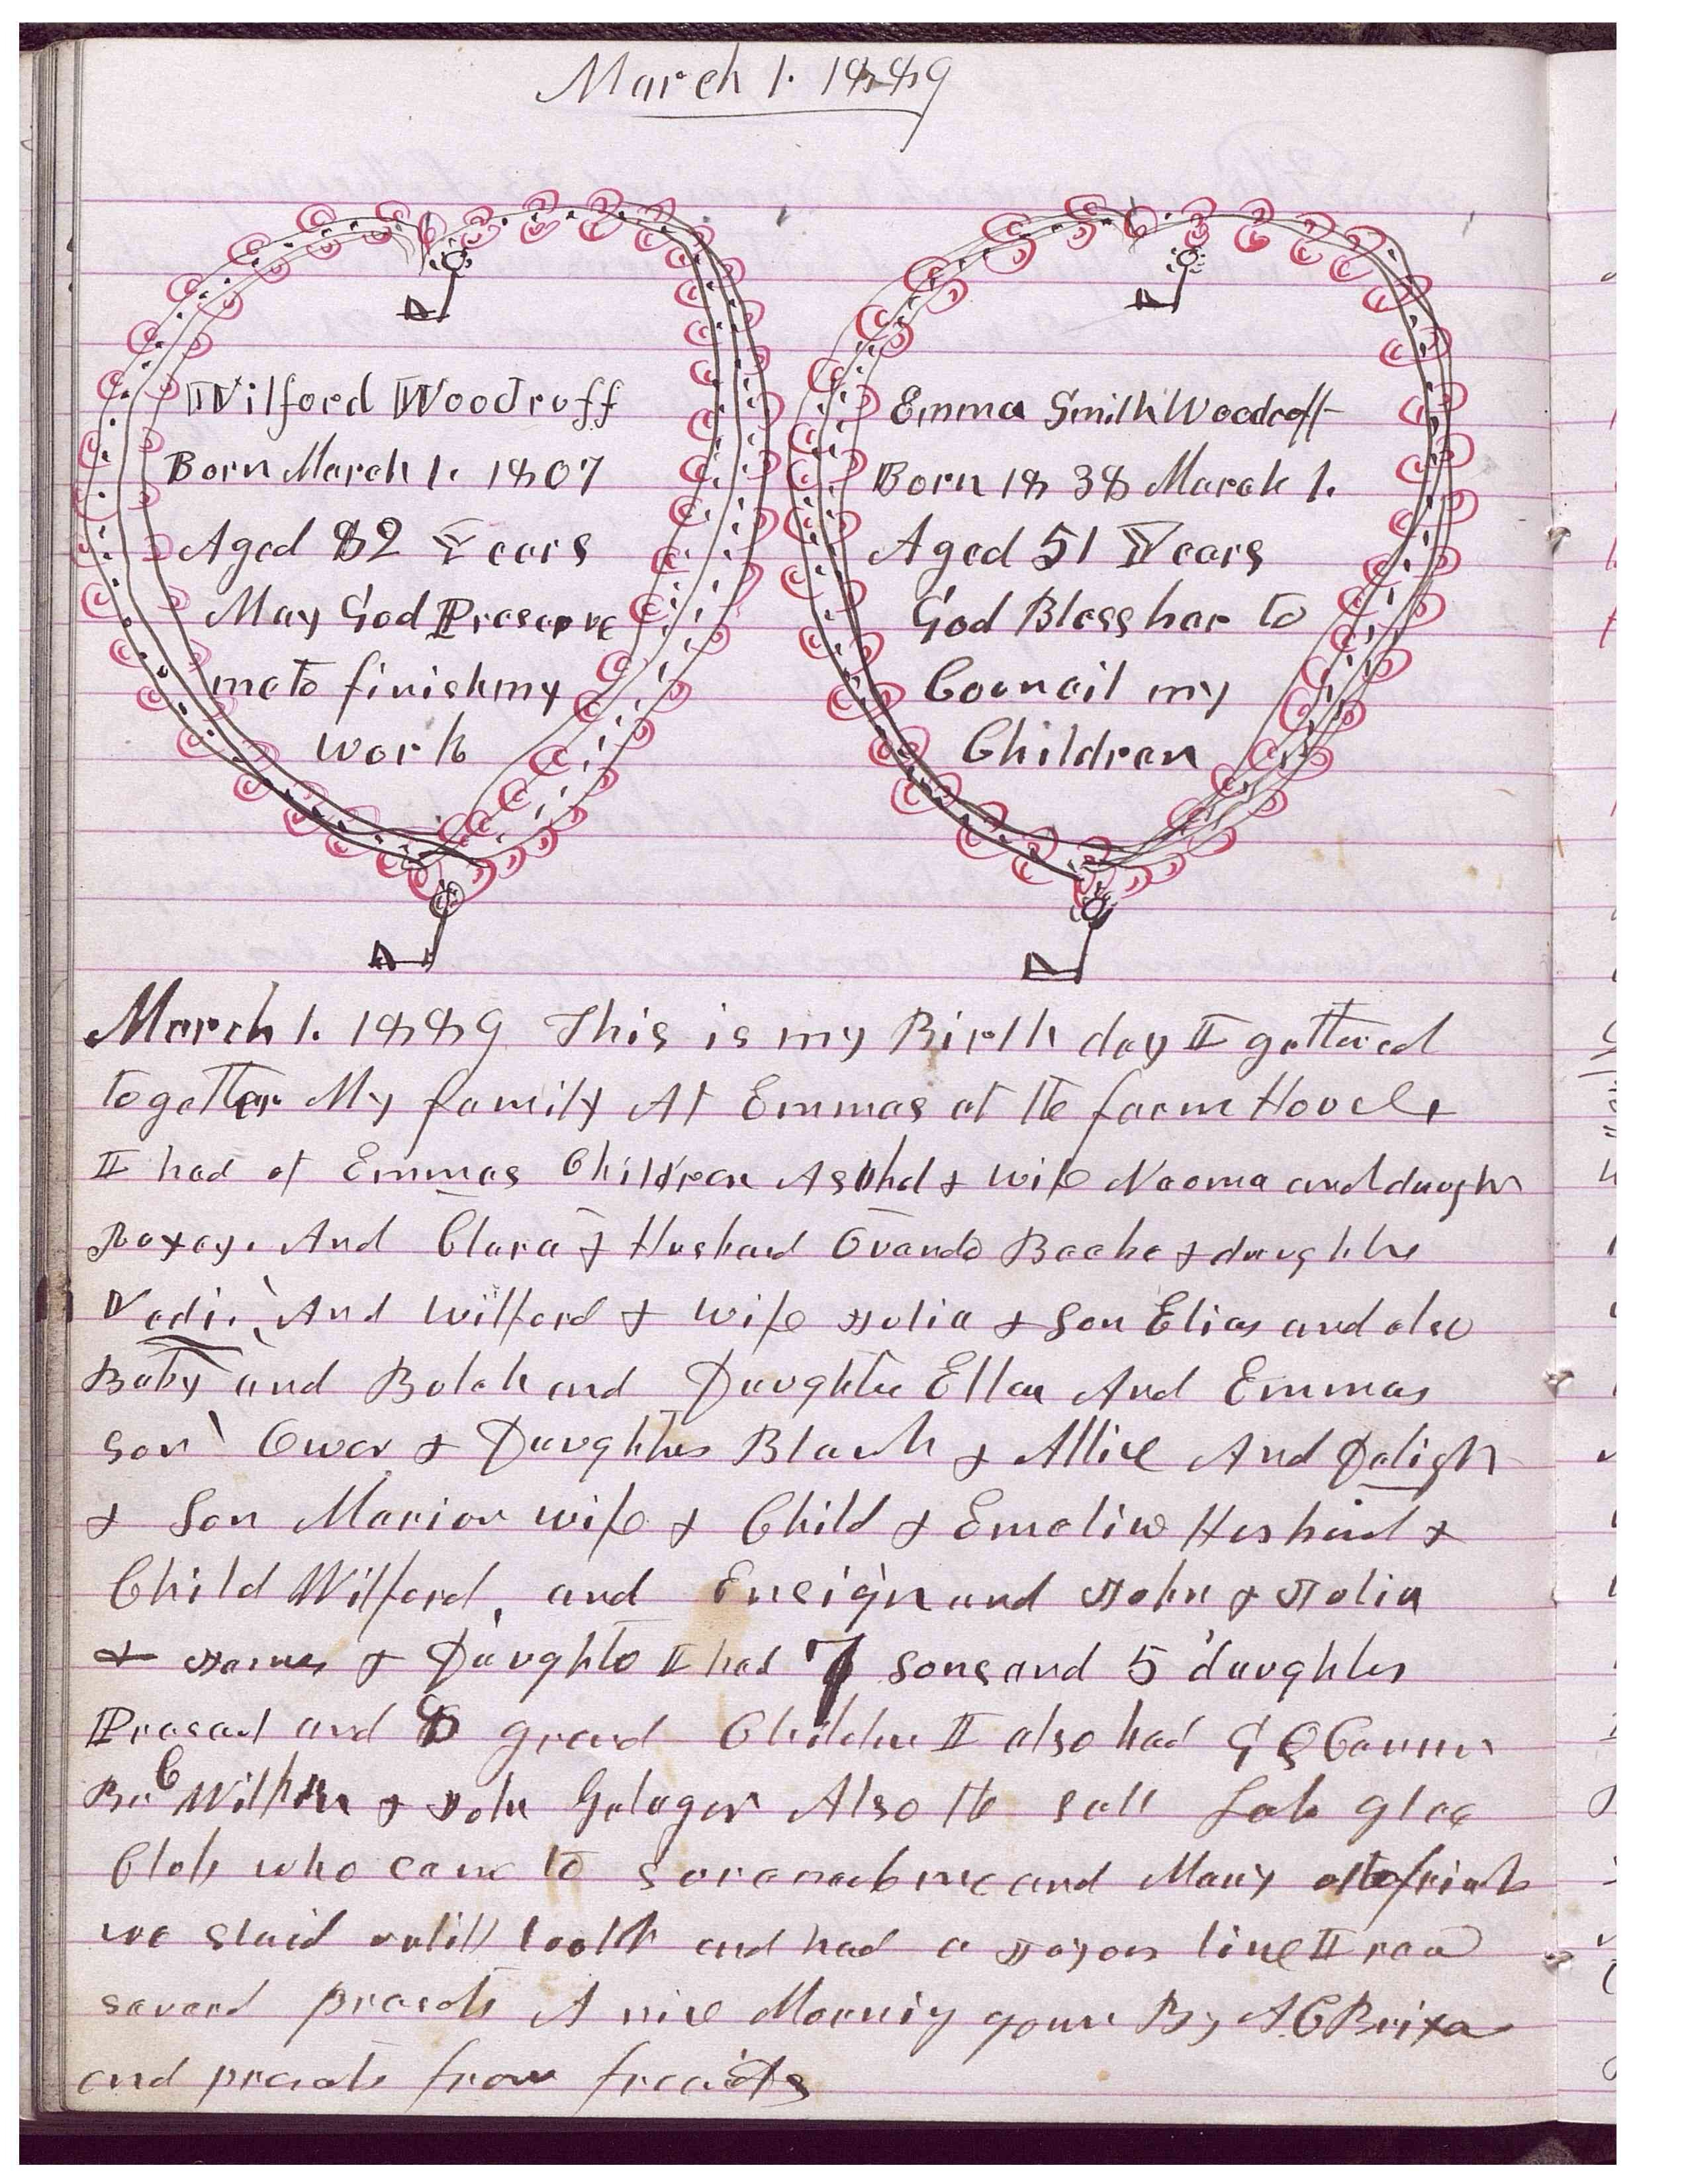 March 1. 1889
Wilford Woodruff
Born March 1. 1807
Aged 82 Years
May God Preserve
me to finish my
work
Emma Smith Woodruff
Born 1838 March 1.
Aged 51 Years
God Bless her to
Council my
Children
March 1. 1889 This is my Birth day I gathered
together My family At Emmas at the farm House
I had of Emmas Children Asahel & wife Naoma and daught
And Clara & Husband Ovando Beebe & daughter
And Wilford & wife Julia & Son Elias and also
Baby and Bulah and Daughter Ellen And Emmas
son Owen & Daughters Blanch & Allice And Deligh
& Son Marion wife & Child & Emeline Husband &
Child Wilford, and Ensign and John & Julia
& James & Daughter I had 7 sons and 5 daughters
Present and 8 grand Children I also had G Q Cannon
Br Wilken & John Also the salt Lake glee
Club who came to sorenade me and Many other friends
we staid untill 10 oclk and had a joyous time I recd
several presents A nice Morning gown By A C Brixen
and presents from friends